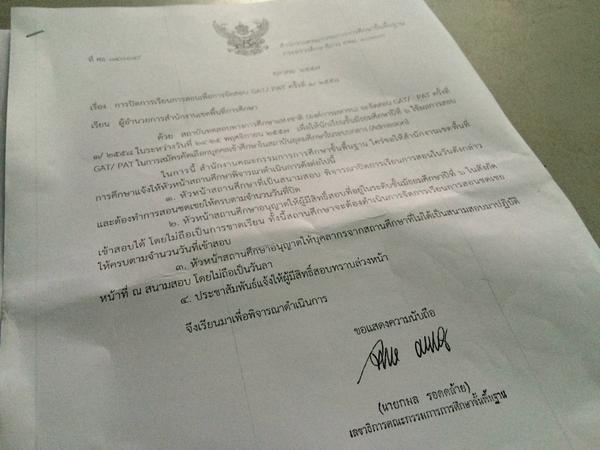 ที่ ศธ
สำนักงานคณะกรรมการการศึกษาขั้นพื้นฐาน
กระทรวงศึกษาธิการ กทม. ๑๐๓๐๐
ตุลาคม ๒๕๕๗
เรื่อง การปิดการเรียนการสอนเพื่อการจัดสอบ GAT/ PAT ครั้งที่ ๑/ ๒๕๕๘
เรียน ผู้อำนวยการสำนักงานเขตพื้นที่การศึกษา
ด้วย สถาบันทดสอบทางการศึกษาแห่งชาติ (องค์การมหาชน) จะจัดสอบ GAT/ PAT ครั้งที่
๑/ ๒๕๕๘ ในระหว่างวันที่ พฤศจิกายน ๒๕๕๗ เพื่อให้นักเรียนชั้นมัธยมศึกษาปีที่ ๖ ใช้ผลการสอบ
GAT/ PAT ในการสมัครคัดเลือกบุคคลเข้าศึกษาในสถาบันอุดมศึกษาในระบบกลาง (Admissions)
ในการนี้ สำนักงานคณะกรรมการการศึกษาขั้นพื้นฐาน ใคร่ขอให้สำนักงานเขตพื้นที่
การศึกษาแจ้งให้หัวหน้าสถานศึกษาพิจารณาดำเนินการดังต่อไปนี้
๑. หัวหน้าสถานศึกษาที่เป็นสนามสอบ พิจารณาปิดการเรียนการสอนในวันดังกล่าว
และต้องทำการสอนชดเชยให้ครบตามจำนวนวันที่ปิด
๒. หัวหน้าสถานศึกษาอนุญาตให้ผู้มีสิทธิ์สอบที่อยู่ในระดับชั้นมัธยมศึกษาปีที่ ๖ ในสังกัด
เข้าสอบได้ โดยไม่ถือเป็นการขาดเรียน ทั้งนี้สถานศึกษาจะต้องดำเนินการจัดการเรียนการสอนชดเชย
ให้ครบตามจำนวนวันที่เข้าสอบ
๓. หัวหน้าสถานศึกษาอนุญาตให้บุคลากรจากสถานศึกษาที่ไม่ได้เป็นสนามสอบมาปฏิบัติ
หน้าที่ ณ สนามสอบ โดยไม่ถือเป็นวันลา
๔. ประชาสัมพันธ์แจ้งให้ผู้มีสิทธิ์สอบทราบล่วงหน้า
จึงเรียนมาเพื่อพิจารณาดำเนินการ
ขอแสดงความนับถือ
(นายกมล รอดคล้าย)
เลขาธิการคณะกรรมการการศึกษาขั้นพื้นฐาน